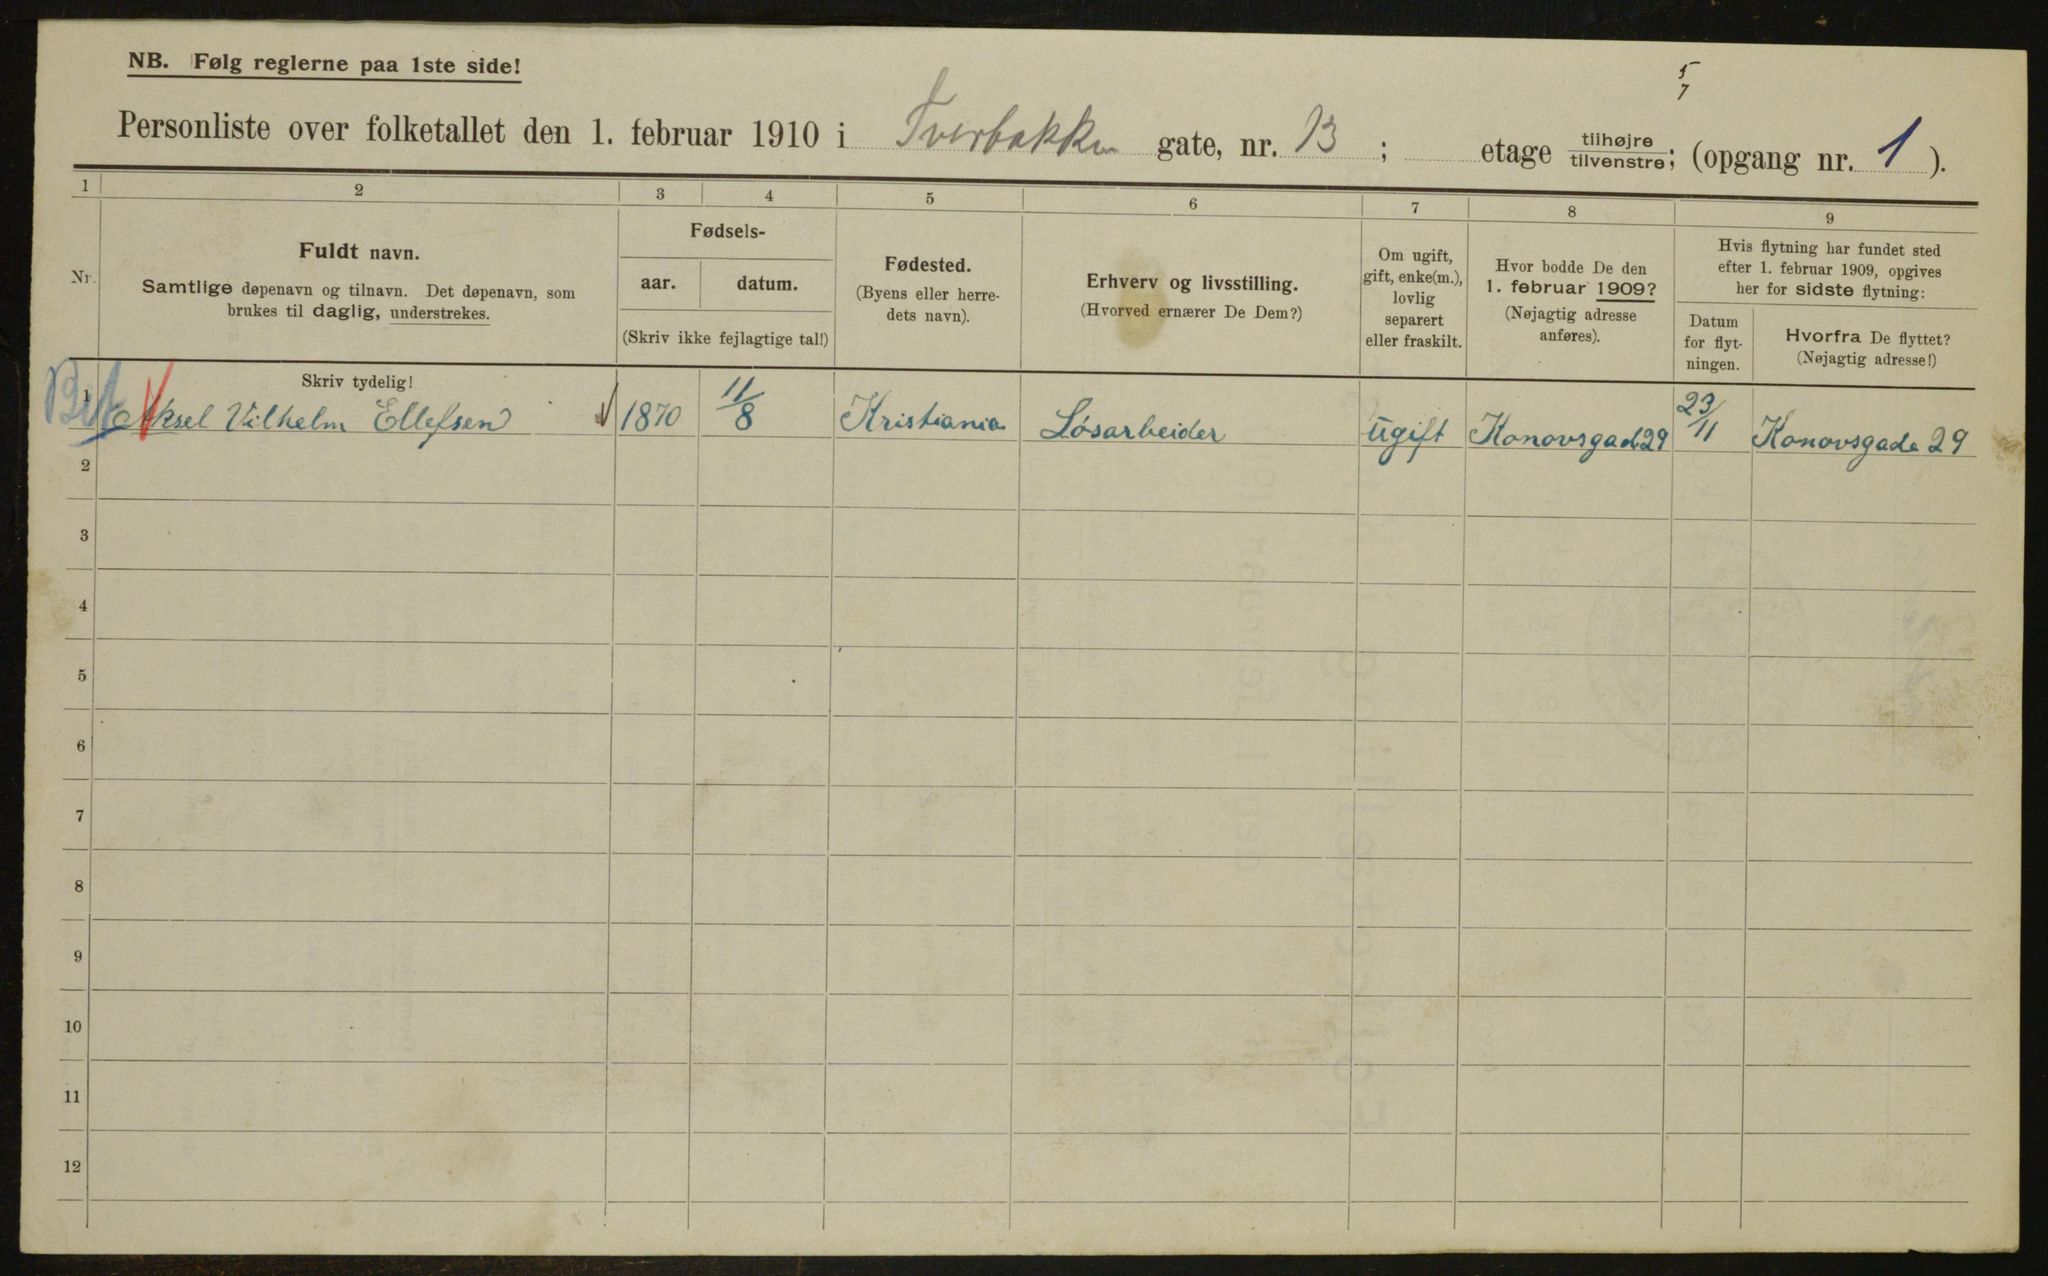 NB. Følg reglerne paa 1ste side!
5/7
Personliste over folketallet den 1. februar 1910 i Tverbakken gate, nr. 13 ; etage tilhøjre/tilvenstre; (opgang nr. 1 ).
1 2 3 4 5 6 7 8 9
Nr.
Fuldt navn.
Samtlige døpenavn og tilnavn. Det døpenavn, som
brukes til daglig, understrekes.
Fødsels-
aar. datum.
(Skriv ikke fejlagtige tal!)
Fødested.
(Byens eller herre-
dets navn).
Erhverv og livsstilling.
(Hvorved ernærer De Dem?)
Om ugift,
gift, enke(m.),
lovlig
separert
eller fraskilt.
Hvor bodde De den
1. februar 1909?
(Nøjagtig adresse
anføres).
Hvis flytning har fundet sted
efter 1. februar 1909, opgives
her for sidste flytning:
Datum
for flyt-
ningen.
Hvorfra De flyttet?
(Nøjagtig adresse!)
Skriv tydelig!
1 Aksel Vilhelm Ellefsen 1870 11/8 Kristiania Løsarbeider ugift Konovsgad 29 23/11 Konovsgade 29
2
3
4
5
6
7
8
9
10
11
12